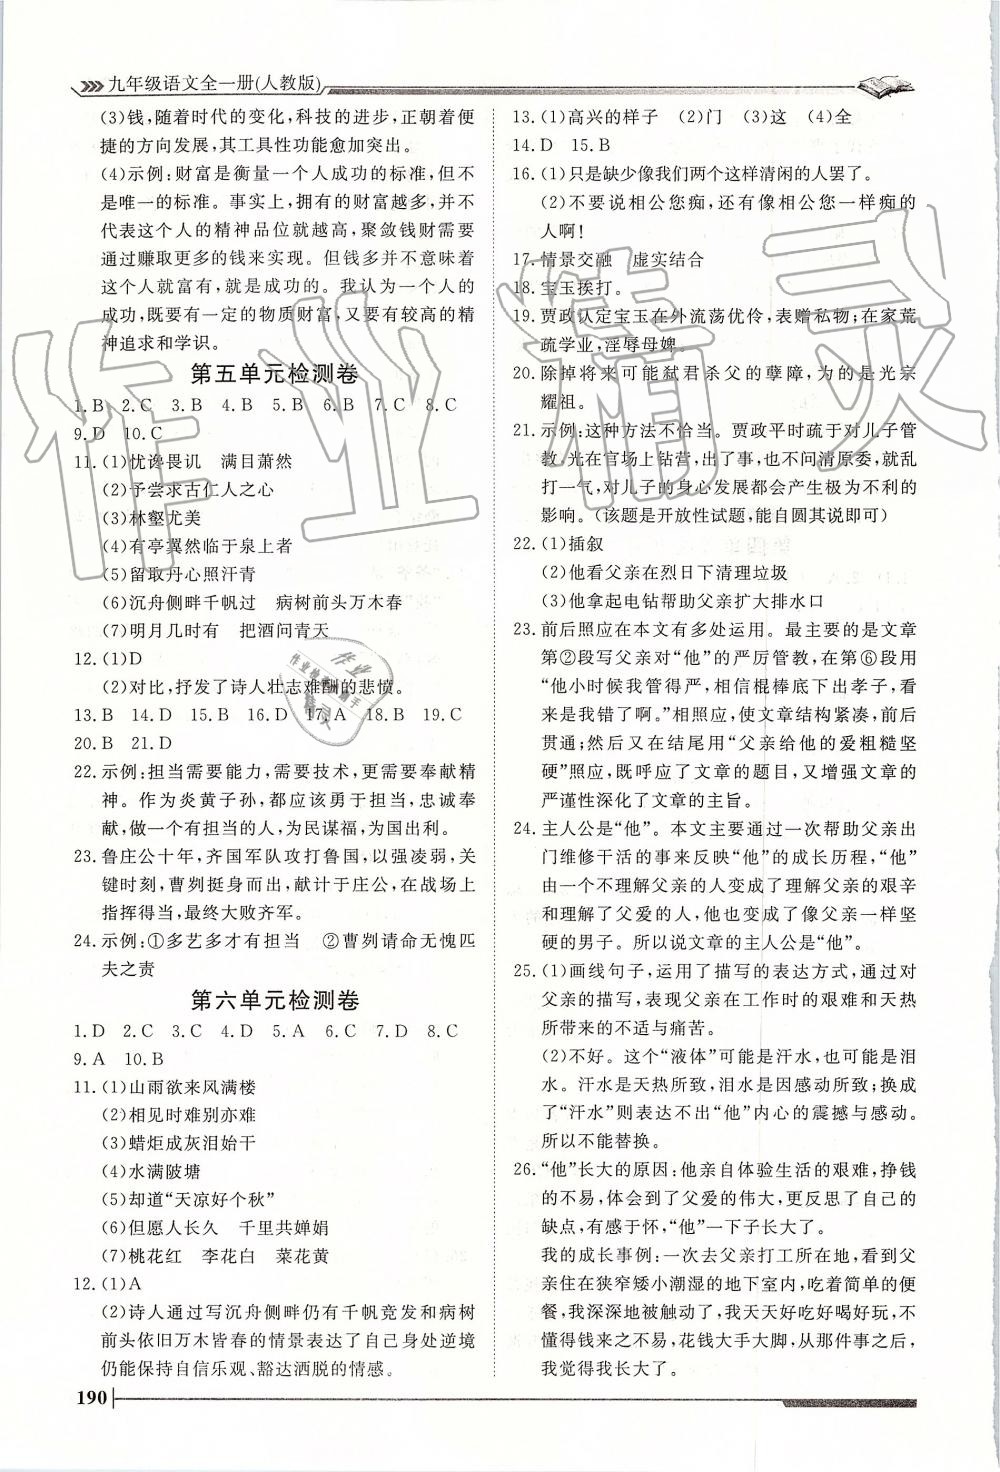 九年级语文全一册(人教版)
(3)钱,随着时代的变化,科技的进步,正朝着便
捷的方向发展,其工具性功能愈加突出。
(4)示例:财富是衡量一个人成功的标准,但不
是唯一的标准。事实上,拥有的财富越多,并不
代表这个人的精神品位就越高,聚敛钱财需要
通过赚取更多的钱来实现。但钱多并不意味着
这个人就富有,就是成功的。我认为一个人的
成功,既要有一定的物质财富,又要有较高的精
神追求和学识。
第五单元检测卷
1.B 2.C 3.B 4.B 5.B 6.B 7.C 8.C
9.D 10.C
11.(1)忧谗畏讥 满目萧然
(2)予尝求古仁人之心
(3)林壑尤美
(4)有亭翼然临于泉上者
(5)留取丹心照汗青
(6)沉舟侧畔千帆过 病树前头万木春
(7)明月几时有 把酒问青天
12.(1)D
(2)对比,抒发了诗人壮志难酬的悲愤。
13.B 14.D 15.B 16.D 17.A 18.B 19.C
20.B 21.D
22.示例:担当需要能力,需要技术,更需要奉献精
神。作为炎黄子孙,都应该勇于担当,忠诚奉
献,做一个有担当的人,为民谋福,为国出利。
23.鲁庄公十年,齐国军队攻打鲁国,以强凌弱,关
键时刻,曹刿挺身而出,献计于庄公,在战场上
指挥得当,最终大败齐军。
24.示例:①多艺多才有担当 ②曹刿请命无愧匹
夫之责
第六单元检测卷
1.D 2.C 3.C 4.D 5.A 6.C 7.D 8.C
9.A 10.B
11.(1)山雨欲来风满楼
(2)相见时难别亦难
(3)蜡炬成灰泪始干
(4)水满陂塘
(5)却道“天凉好个秋”
(6)但愿人长久 千里共婵娟
(7)桃花红 李花白 菜花黄
12.(1)A
(2)诗人通过写沉舟侧畔仍有千帆竞发和病树
前头依旧万木皆春的情景表达了自己身处逆境
仍能保持自信乐观、豁达洒脱的情感。
13.(1)高兴的样子 (2)门 (3)这 (4)全
14.D 15.B
16.(1)只是缺少像我们两个这样清闲的人罢了。
(2)不要说相公您痴,还有像相公您一样痴的
人啊!
17.情景交融 虚实结合
18.宝玉挨打。
19.贾政认定宝玉在外流荡优伶,表赠私物;在家荒
疏学业,淫辱母婢。
20.除掉将来可能弑君杀父的孽障,为的是光宗
耀祖。
21.示例:这种方法不恰当。贾政平时疏于对儿子管
教,光在官场上钻营,出了事,也不问清原委,就乱
打一气,对儿子的身心发展都会产生极为不利的
影响。(该题是开放性试题,能自圆其说即可)
22.(1)插叙
(2)他看父亲在烈日下清理垃圾
(3)他拿起电钻帮助父亲扩大排水口
23.前后照应在本文有多处运用。最主要的是文章
第②段写父亲对“他”的严厉管教,在第⑥段用
“他小时候我管得严,相信棍棒底下出孝子,看
来是我错了啊。”相照应,使文章结构紧凑,前后
贯通;然后又在结尾用“父亲给他的爱粗糙坚
硬”照应,既呼应了文章的题目,又增强文章的
严谨性深化了文章的主旨。
24.主人公是“他”。本文主要通过一次帮助父亲出
门维修干活的事来反映“他”的成长历程,“他”
由一个不理解父亲的人变成了理解父亲的艰辛
和理解了父爱的人,他也变成了像父亲一样坚
硬的男子。所以说文章的主人公是“他”。
25.(1)画线句子,运用了描写的表达方式,通过对
父亲的描写,表现父亲在工作时的艰难和天热
所带来的不适与痛苦。
(2)不好。这个“液体”可能是汗水,也可能是泪
水。汗水是天热所致,泪水是因感动所致;换成
了“汗水”则表达不出“他”内心的震撼与感动。
所以不能替换。
26.“他”长大的原因:他亲自体验生活的艰难,挣钱
的不易,体会到了父爱的伟大,更发现了自己的
缺点,有感于怀,“他”一下子长大了。
我的成长事例:一次去父亲打工所在地,看到父
亲住在狭窄矮小潮湿的地下室内,吃着简单的便
餐,我深深地被触动了,我天天好吃好喝好玩,不
懂得钱来之不易,花钱大手大脚,从那件事之后,
我觉得我长大了。
190
作业精灵